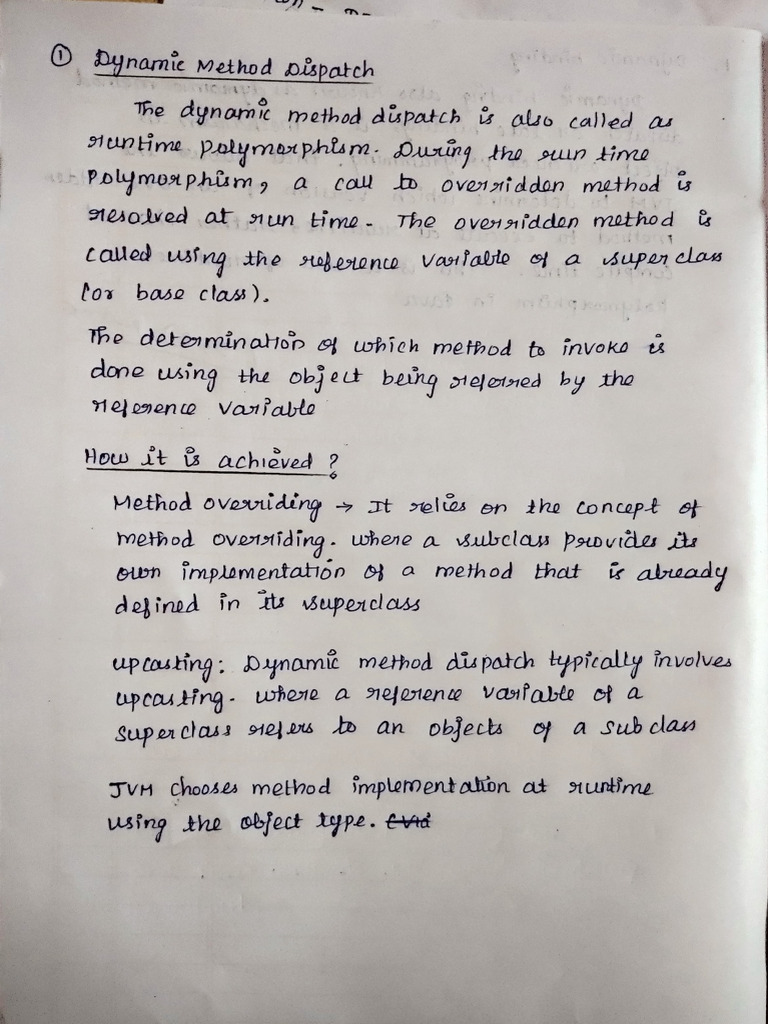 ① Dynamic Method Dispatch
The dynamic method dispatch is also called as
runtime polymorphism. During the run time
polymorphism, a call to overridden method is
resolved at run time. The overridden method is
called using the reference variable of a super class
(or base class).
The determination of which method to invoke is
done using the object being referred by the
reference variable
How it is achieved ?
Method overriding → It relies on the concept of
method overriding. where a subclass provides its
own implementation of a method that is already
defined in its superclass
upcasting: Dynamic method dispatch typically involves
upcasting. where a reference variable of a
superclass refers to an objects of a sub class
JVM chooses method implementation at runtime
using the object type.